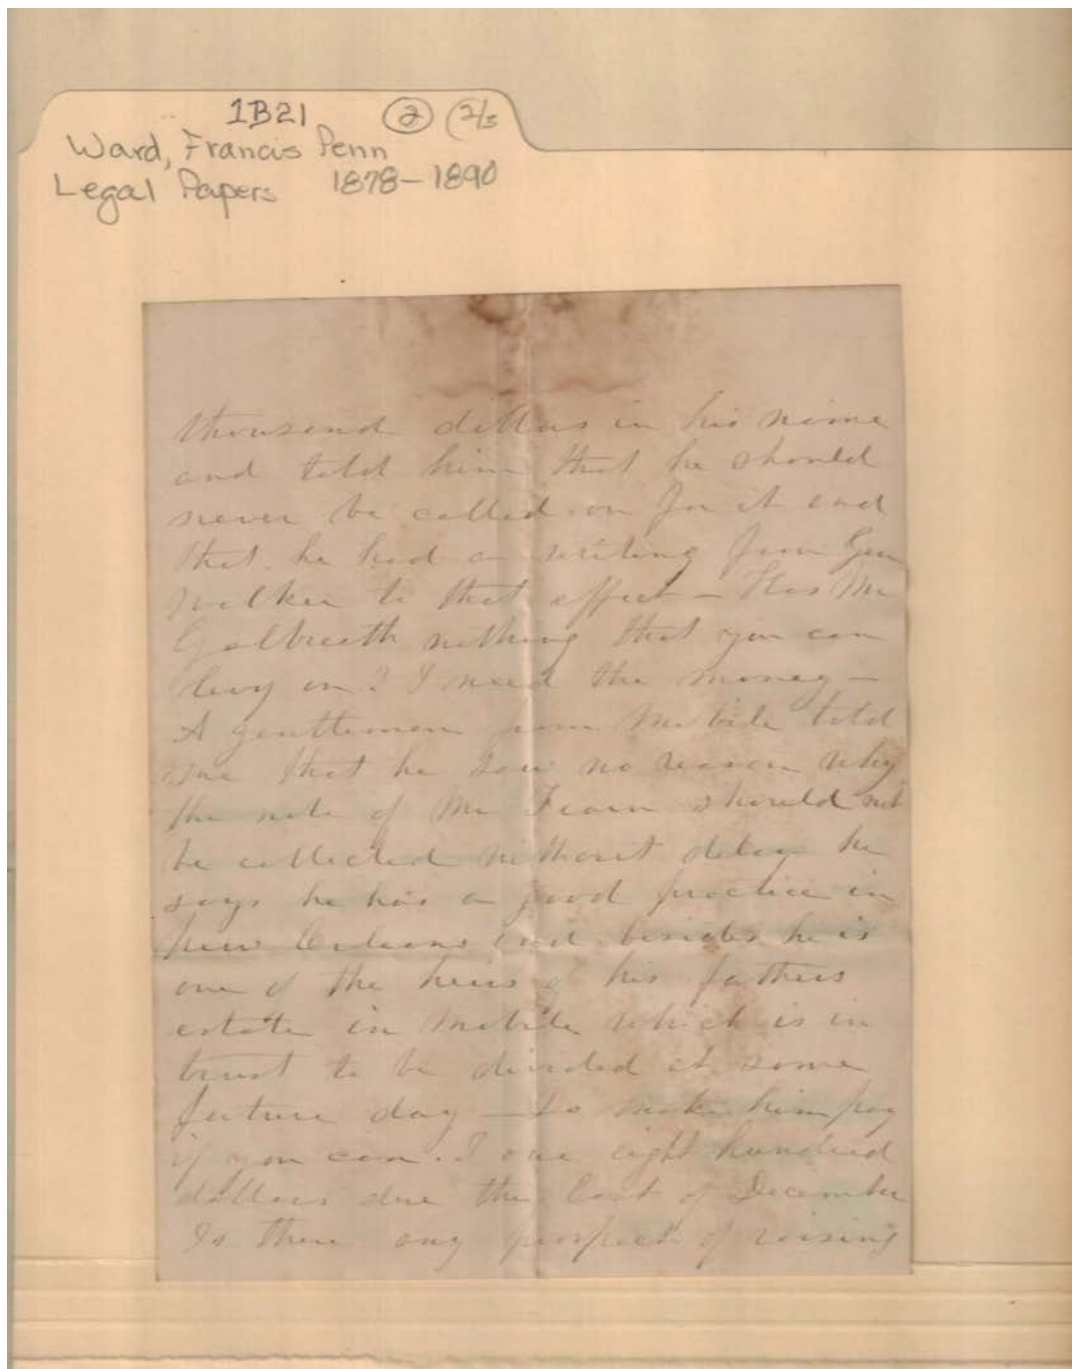 1B21 2 (2/3
Ward, Francis Penn
Legal Papers 1878-1890
thousand dollars in his name
and told him that he should
never be called on for it and
that he had a writing from Gen
Walker to that effect - Has Mr
Galbreath nothing that you can
levy on? I need the money -
A gentleman from Mobile told
me that he saw no reason why
the note of Mr Fearn should not
be collected without delay he
says he has a good practice in
New Orleans and besides he is
one of the heirs of his fathers
estate in Mobile which is in
trust to be divided at some
future day - So make him pay
if you can. I owe eight hundred
dollars due the last of December
Is there any prospect of raising